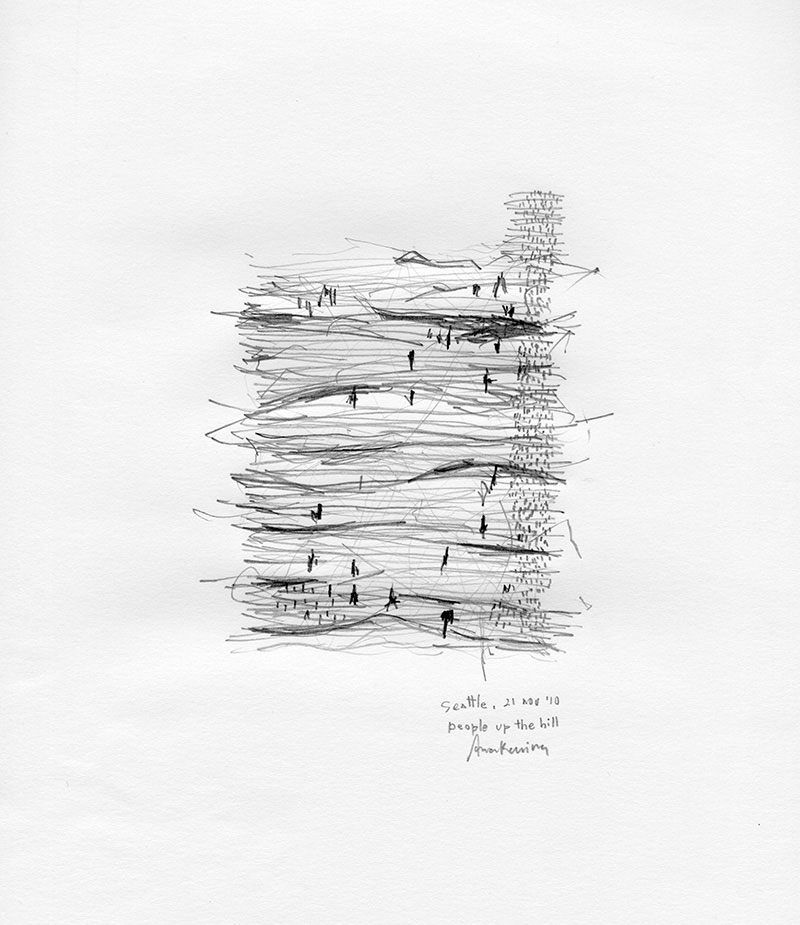 Seattle, 21 nov '10
people up the hill